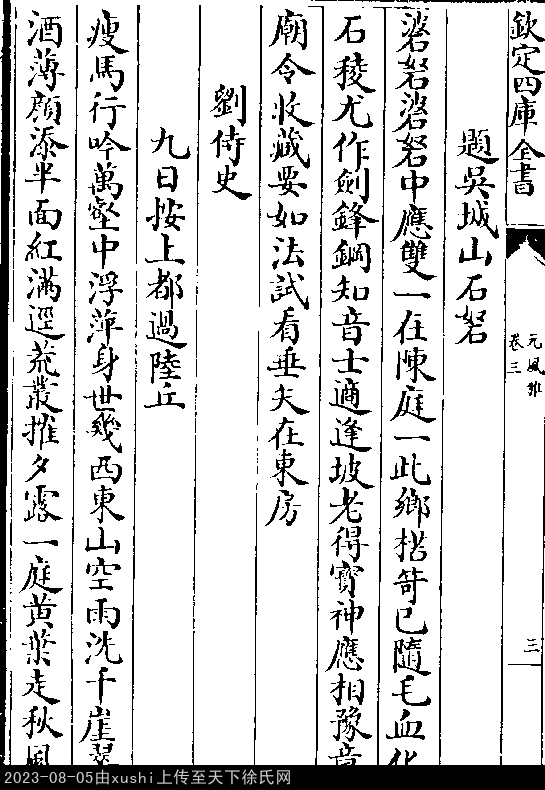 欽定四庫全書
元風雅
卷三
三
題吳城山石砮
碆砮碆砮中應雙一在陳庭一此鄉楛笴已隨毛血化
石稜尤作劍鋒鋼知音士適逢坡老得寳神應相豫章
廟令收藏要如法試看垂矢在東房
劉侍史
九日按上都過陸丘
瘦馬行吟萬壑中浮萍身世幾西東山空雨洗千崖翠
酒薄顔添半面紅滿逕荒叢摧夕露一庭黄葉走秋風
2023-08-05由xushi上传至天下徐氏网